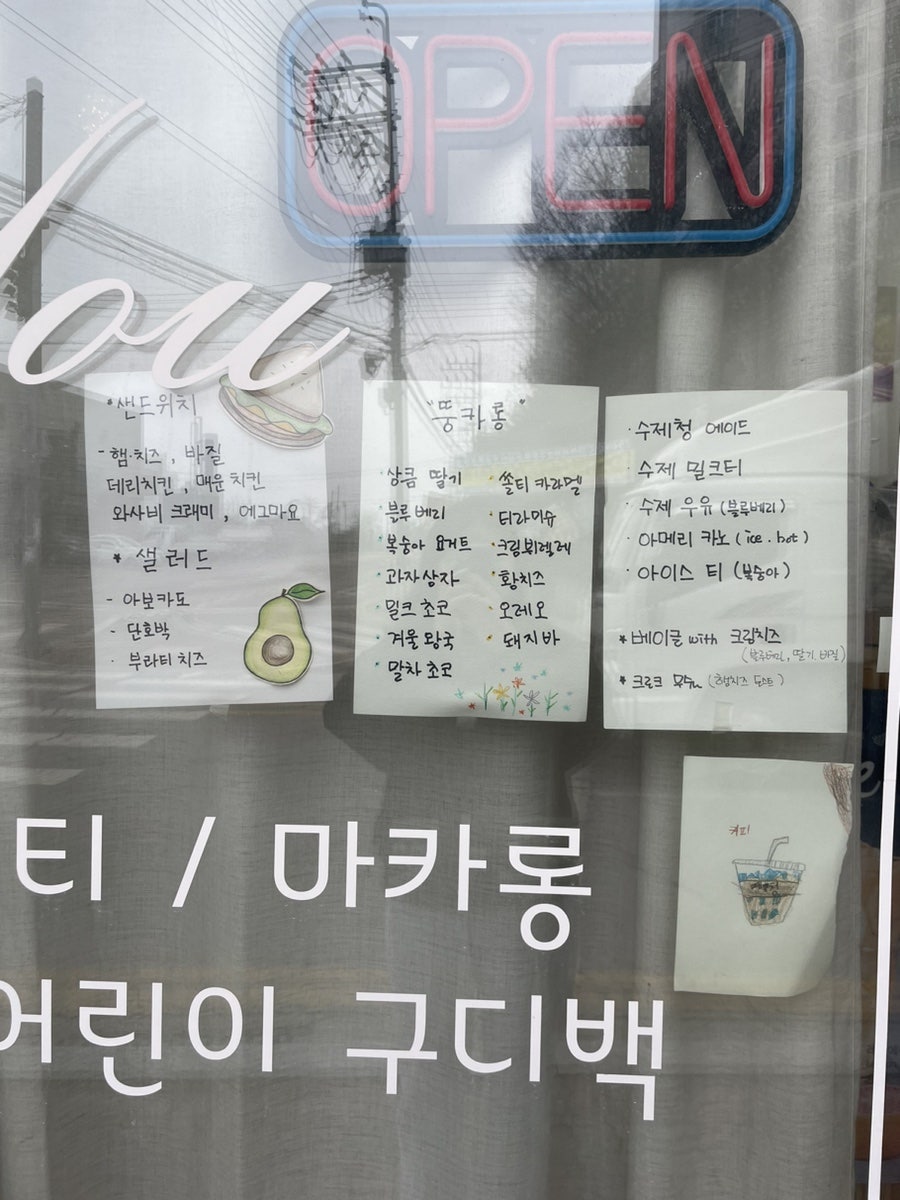 OPEN
ou
*샌드위치
- 햄·치즈, 바질
데리치킨, 매운 치킨
와사비 크래미, 에그마요
* 샐러드
- 아보카도
- 단호박
· 부라티 치즈
"뚱카롱"
· 상큼 딸기
· 블루베리
· 복숭아 요거트
· 과자상자
· 밀크 초코
· 겨울 왕국
· 말차 초코
· 쏠티 카라멜
· 티라미슈
· 크림뷔렐레
· 황치즈
· 오레오
· 돼지바
· 수제청 에이드
· 수제 밀크티
· 수제 우유 (블루베리)
· 아메리카노 (ice·hot)
· 아이스 티 (복숭아)
* 베이글 with 크림치즈
(블루베리, 딸기, 바질)
* 크로크 무슈 (햄치즈 토스트)
커피
티 / 마카롱
어린이 구디백